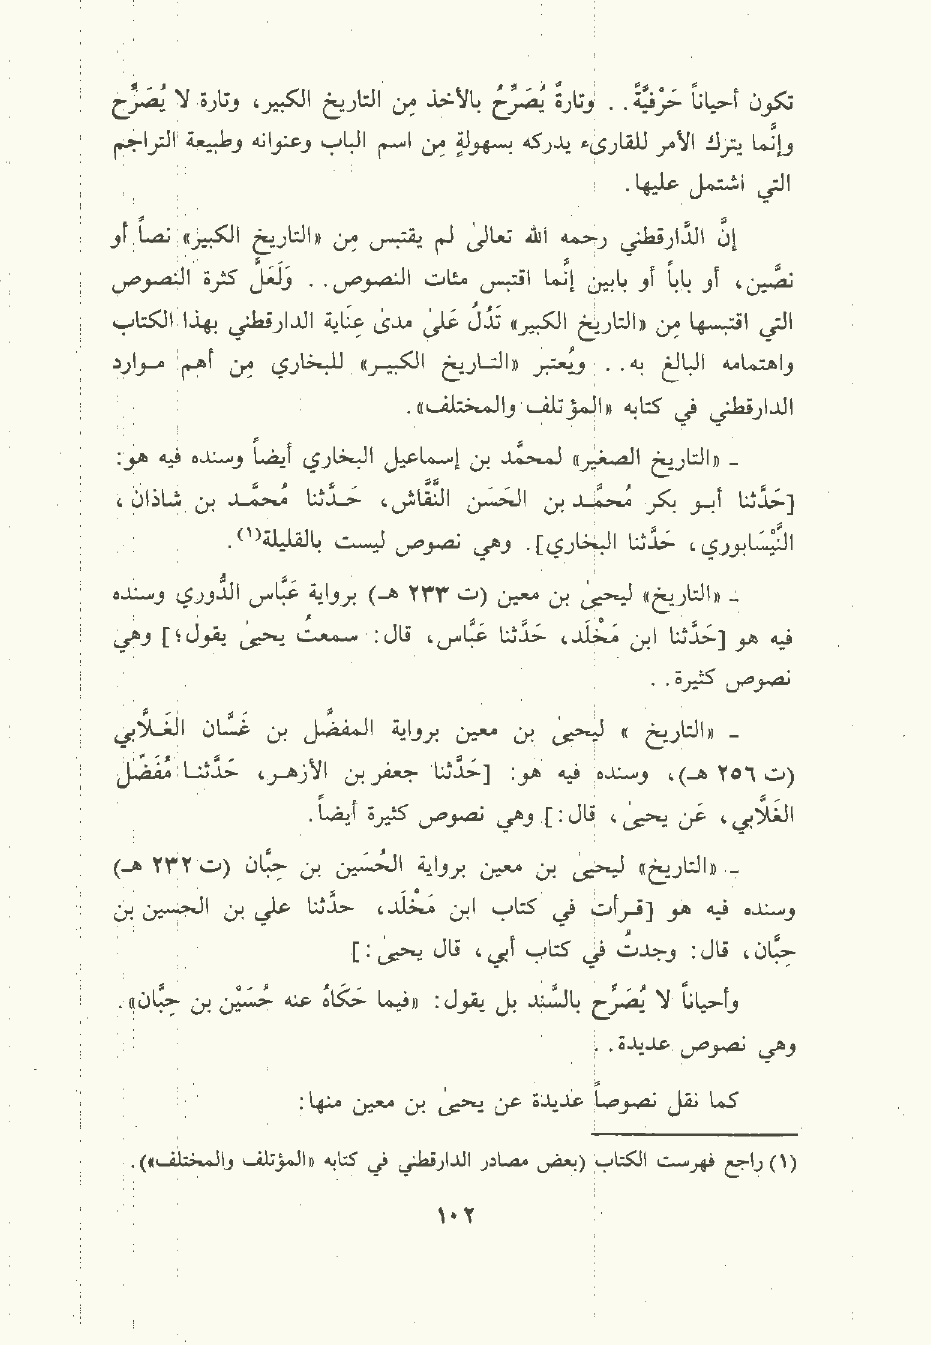 تكون أحياناً حَرْفيَّةً . . وتارةً يُصَرِّحُ بالأخذ مِن التاريخ الكبير، وتارة لا يُصَرِّح
وإنَّما يترك الأمر للقاريء يدركه بسهولةٍ مِن اسم الباب وعنوانه وطبيعة التراجم
التي اشتمل عليها.
إنَّ الدَّارقطني رحمه الله تعالىٰ لم يقتبس مِن «التاريخ الكبير» نصاً أو
نصَّين، أو باباً أو بابين إنَّما اقتبس مئات النصوص. . وَلَعَلَّ كثرة النصوص
التي اقتبسها مِن «التاريخ الكبير» تَدُلُّ عَلى مدىٰ عِنَاية الدارقطني بهذا الكتاب
واهتمامه البالغ به. . ويُعتبر «التـاريخ الكبيـر» للبخاري مِن أهم مـوارد
الدارقطني في كتابه «المؤتلف والمختلف».
ـ «التاريخ الصغير» لمحمَّد بن إسماعيل البخاري أيضاً وسنده فيه هو:
[حَدَّثنا أبـو بكر مُحمَّـد بن الحَسَن النَّقَّاش، حَـدَّثنا مُحمَّـد بن شاذان،
النَّيْسَابوري، حَدَّثنا البخاري]. وهي نصوص ليست بالقليلة(١).
ـ «التاريخ» ليحيىٰ بن معين (ت ٢٣٣ هـ) برواية عبَّاس الدُّوري وسنده
فيه هو [حَدَّثنا ابن مَخْلَد، حَدَّثنا عَبَّاس، قال: سمعتُ يحيىٰ يقول؛] وهي
نصوص كثيرة. .
ـ «التاريخ » ليحيىٰ بن معين برواية المفضَّل بن غَسَّان الغَـلَّابي
(ت ٢٥٦ هـ)، وسنده فيه هو: [حدَّثنا جعفر بن الأزهـر، حَدَّثنـا مُفَضَّل
الغَلَّابي، عَن يحيىٰ، قال:] وهي نصوص كثيرة أيضاً.
ـ «التاريخ» ليحيىٰ بن معين برواية الحُسَين بن حِبَّان (ت ٢٣٢ هـ)
وسنده فيه هو [قـرأت في كتاب ابن مَخْلَد، حدَّثنا علي بن الحسين بن
حِبَّان، قال: وجدتُ في كتاب أبي، قال يحيىٰ:]
وأحياناً لا يُصَرِّح بالسَّند بل يقول: «فيما حَكَاهُ عنه حُسَيْن بن حِبَّان».
وهي نصوص عديدة. .
كما نقل نصوصاً عديدة عن يحيىٰ بن معين منها:
(١) راجع فهرست الكتاب (بعض مصادر الدارقطني في كتابه «المؤتلف والمختلف»).
١٠٢